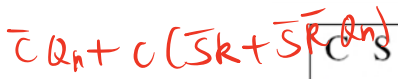 C̅ Qn + C (S̅k + S̅ k̅ Qn)
C S